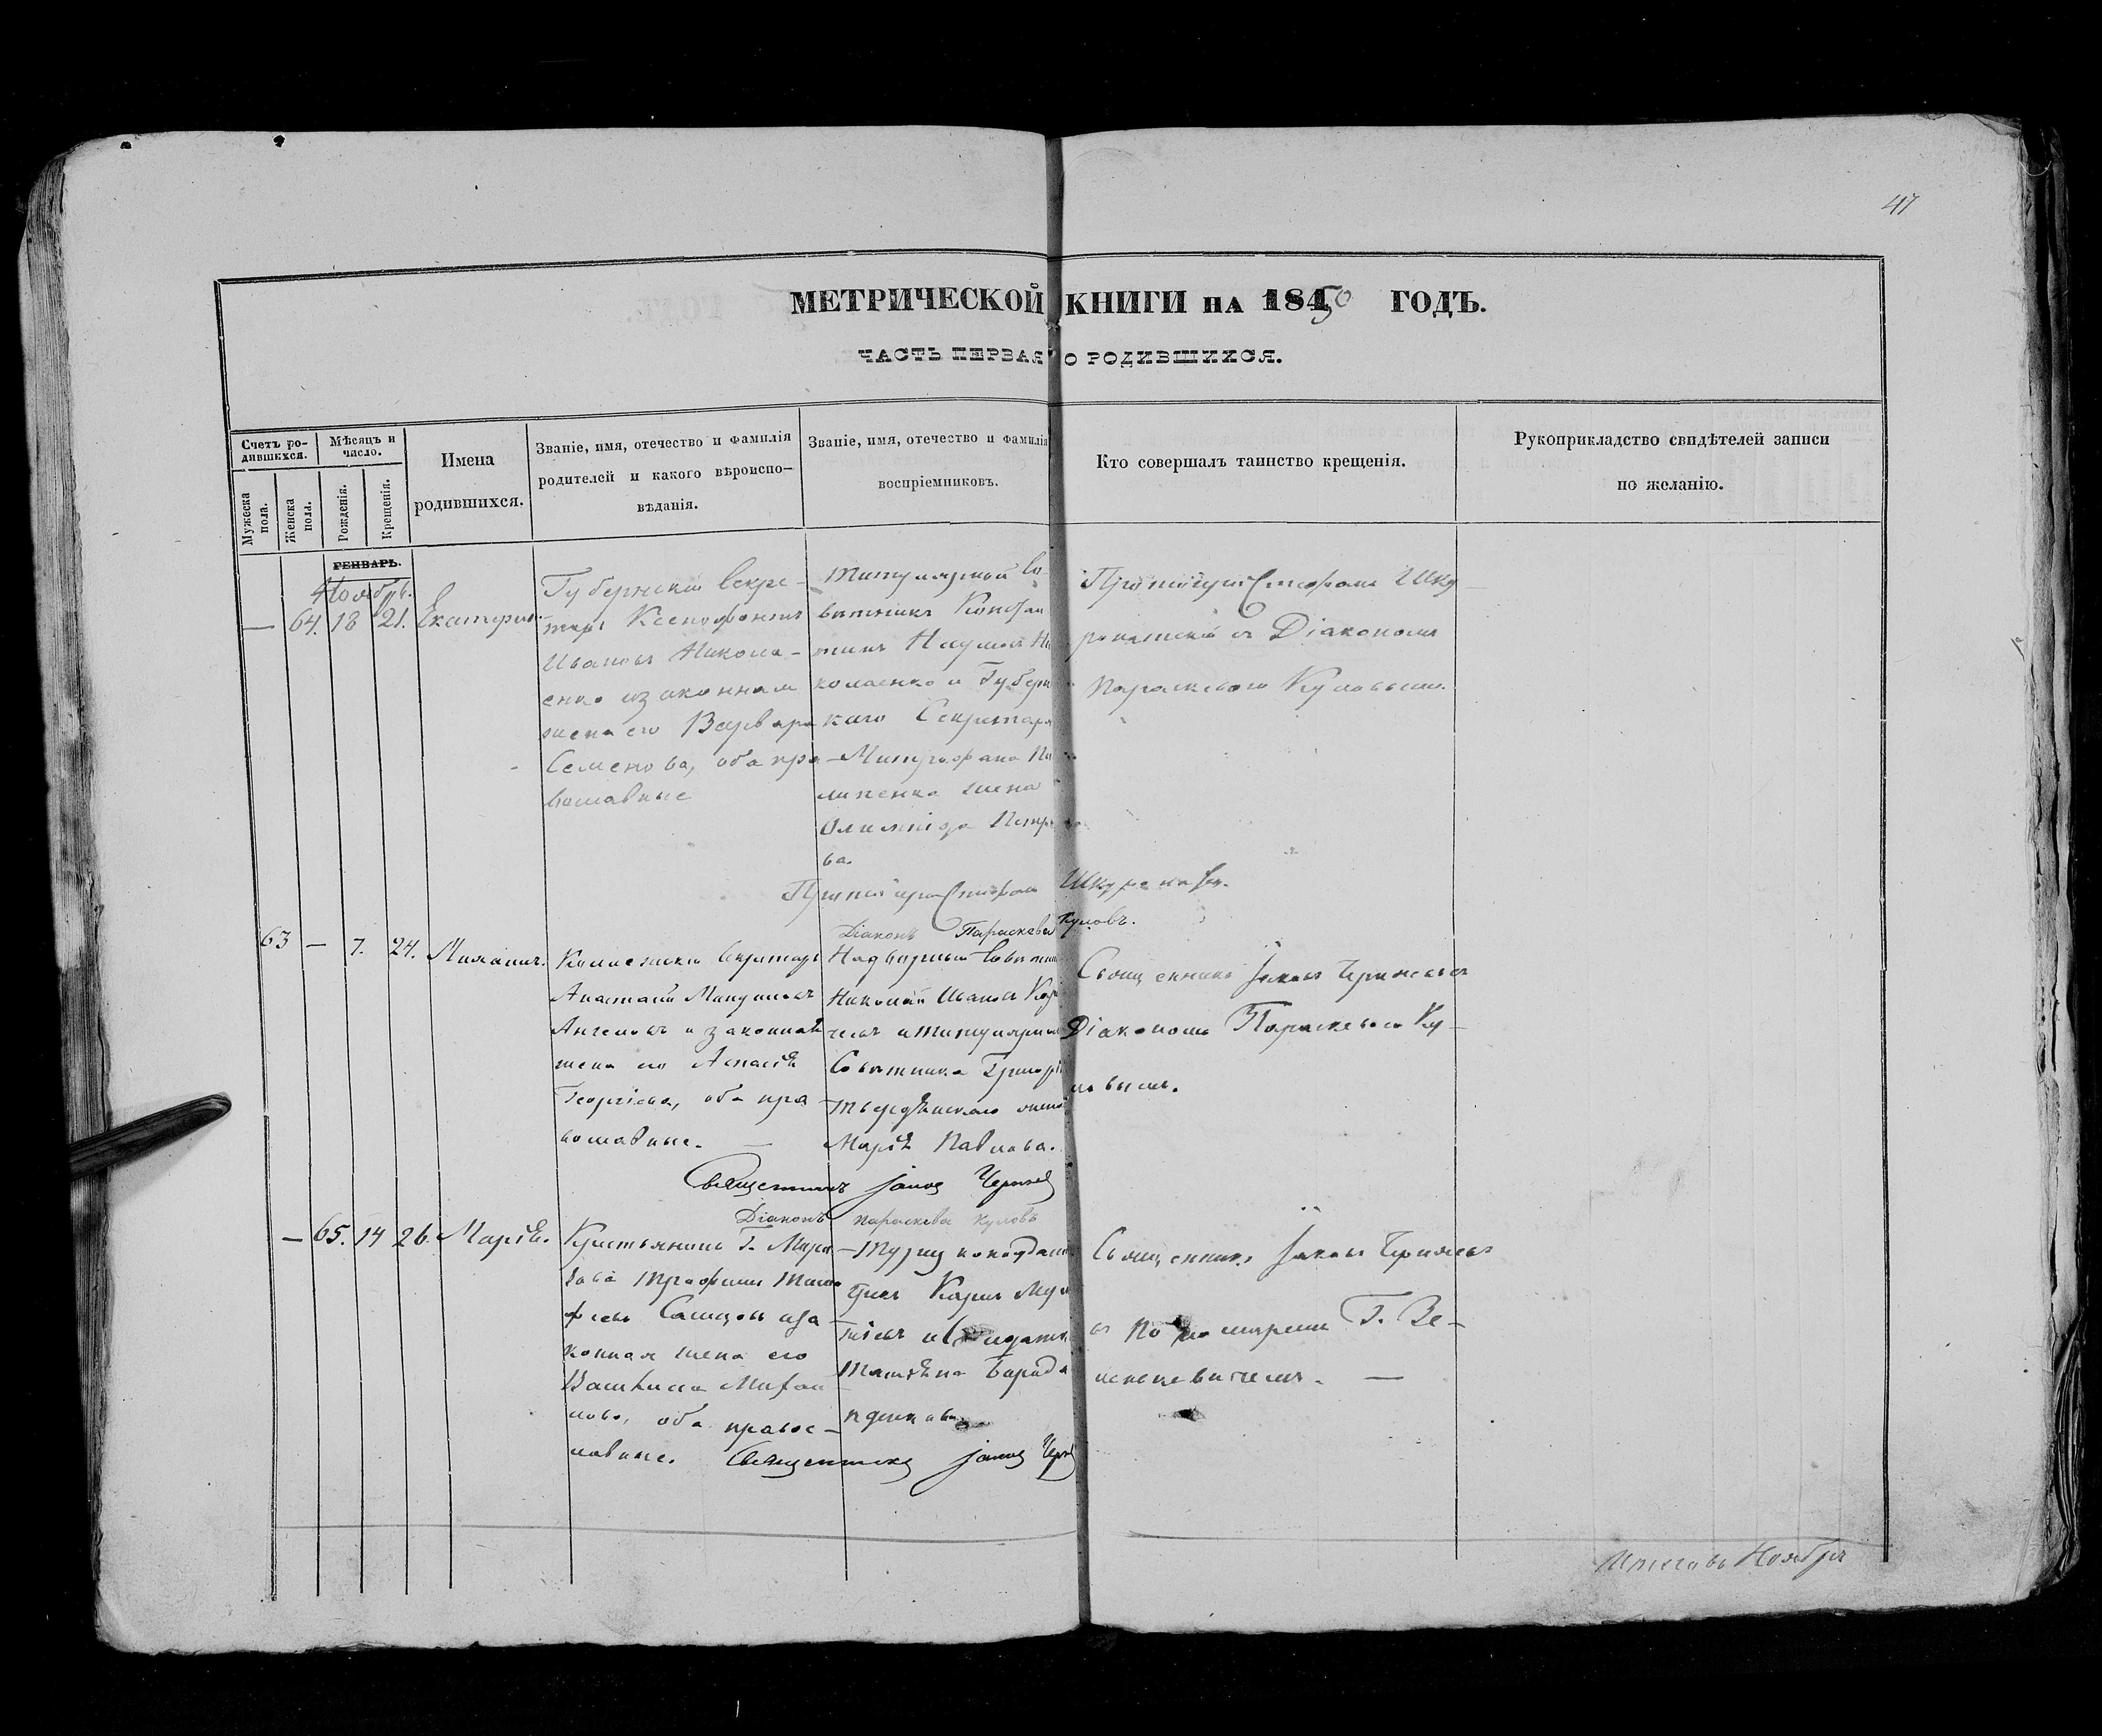 47
МЕТРИЧЕСКОЙ КНИГИ на 1850 ГОДЪ.
ЧАСТЬ ПЕРВАЯ О РОДИВШИХСЯ.
Счетъ ро-
дившихся.
Мужеска пола.
Женска пола.
Мѣсяцъ и
число.
Рожденія.
Крещенія.
Имена
родившихся.
Званіе, имя, отечество и фамилія
родителей и какого вѣроиспо-
вѣданія.
Званіе, имя, отечество и фамилія
воспріемниковъ.
Кто совершалъ таинство крещенія.
Рукоприкладство свидѣтелей записи
по желанію.
ГЕНВАРЬ.
Ноябрь.
— 64. 18 21.
Екатерин
Губернскій Секре-
тарь Ксенофонтъ
Ивановъ Никола-
енко и законная
жена его Варвара
Семенова, оба пра
вославные
Титулярный Со-
вѣтникъ Констан
тинъ Наумовъ Ни
колаенко и Губерн
каго Секретаря
Митрофана Пи
липенка жена
Олимпіада Петро
ва.
Протоіерей Стефанъ Шку
ропатскій съ Діакономъ
Параскевою Куловымъ.
Протоіерей Стефанъ
Діаконъ Параскева Куловъ.
63 — 7. 24.
Михаилъ.
Коллежскій Секретарь
Анастасій Мануиловъ
Ангеловъ и законная
жена его Аспасія
Георгіева, оба пра
вославные. —
Надворный Совѣтник
Николай Ивановъ
и Титулярнаго
Совѣтника Григорія
жена
Марія Павлова.
Священникъ Іаковъ Черняевъ
Діакономъ Параскевою Ку-
ловымъ.
Священникъ Іаковъ Черняевъ
Діаконъ Параскева Куловъ
— 65. 14 26.
Марія.
Крестьянинъ Г.
Трофимъ Тимо
феевъ и за
конная жена его
Василиса Михаи
лова, оба правос-
лавные.
Карпъ
и
Татіана
Священникъ Іаковъ Черняевъ
съ Пономаремъ Г. Ве-
Священникъ Іаковъ Черн
Итого въ Ноябрѣ